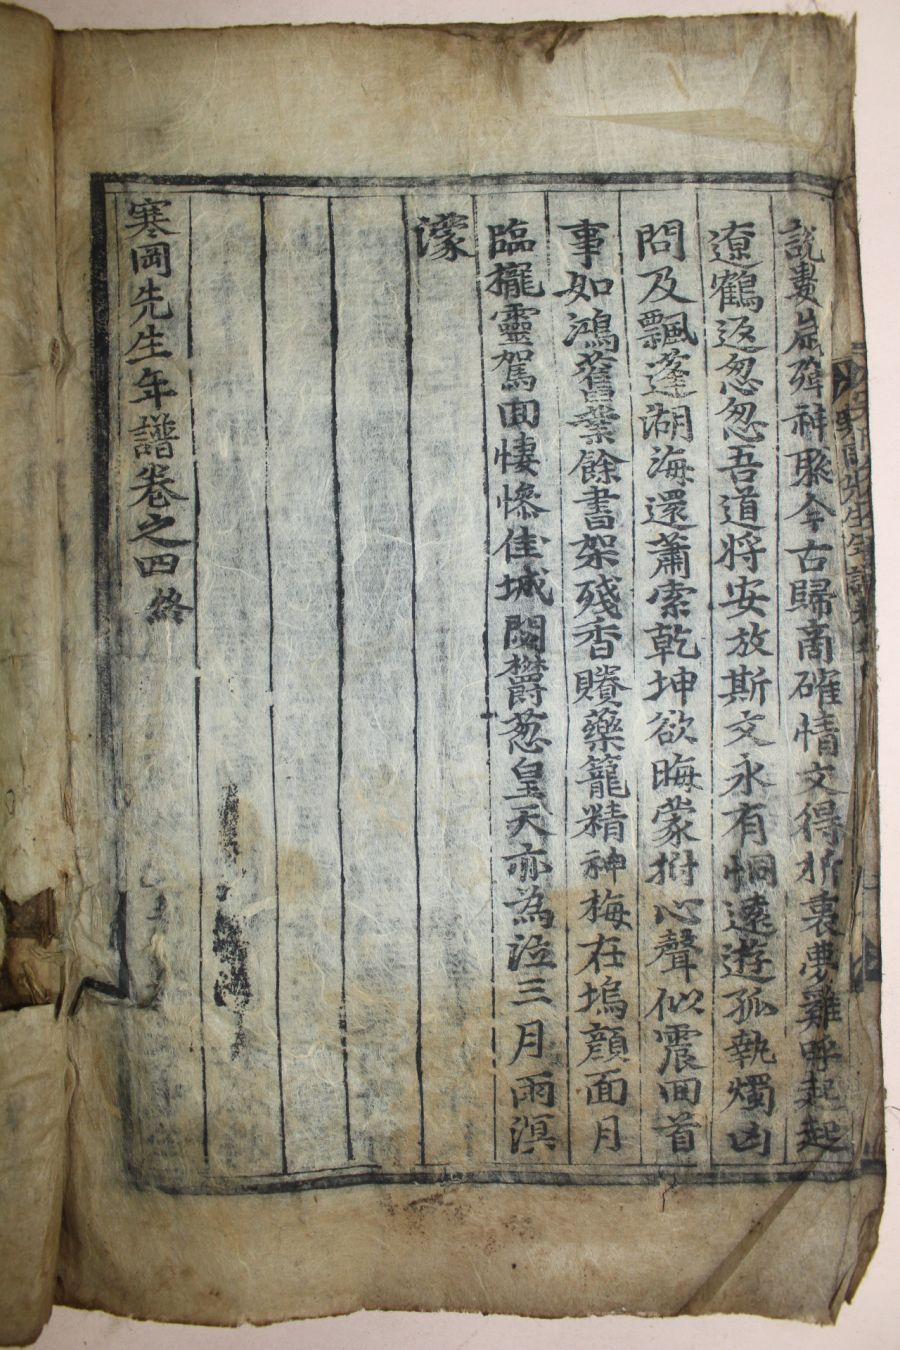 說數歲殫神聚今古歸商確情文得折衷夢難呼起起
遼鶴返忽忽吾道將安放斯文永有恫遠遊孤執燭凶
問及飄蓬湖海還蕭索乾坤欲晦蒙拊心聲似震回首
事如鴻舊業餘書架殘香賸藥籠精神梅在塢顏面月
臨櫳靈駕回悽慘佳城閟欝葱皇天亦為泣三月雨溟
濛
寒岡先生年譜卷之四 終